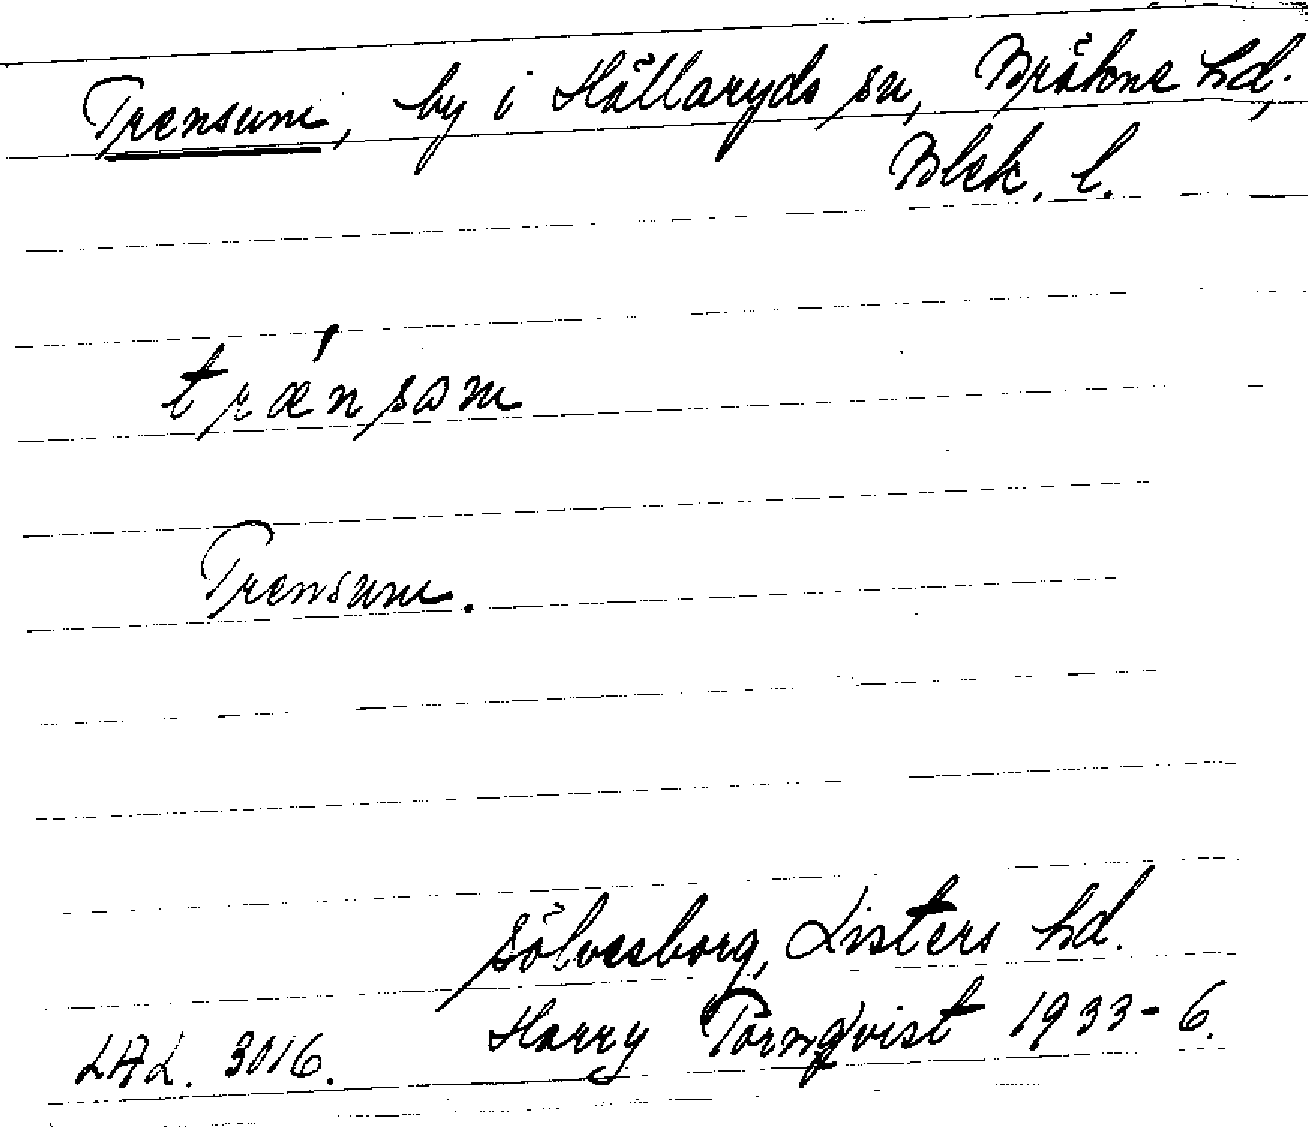 Trensum, by i Hällaryds sn, Bräkne hd,
Blek. l.
træ´nsəm
Trensum.
Sölvesborg, Listers hd.
LAL. 3016. Harry Törnqvist 1933-6.